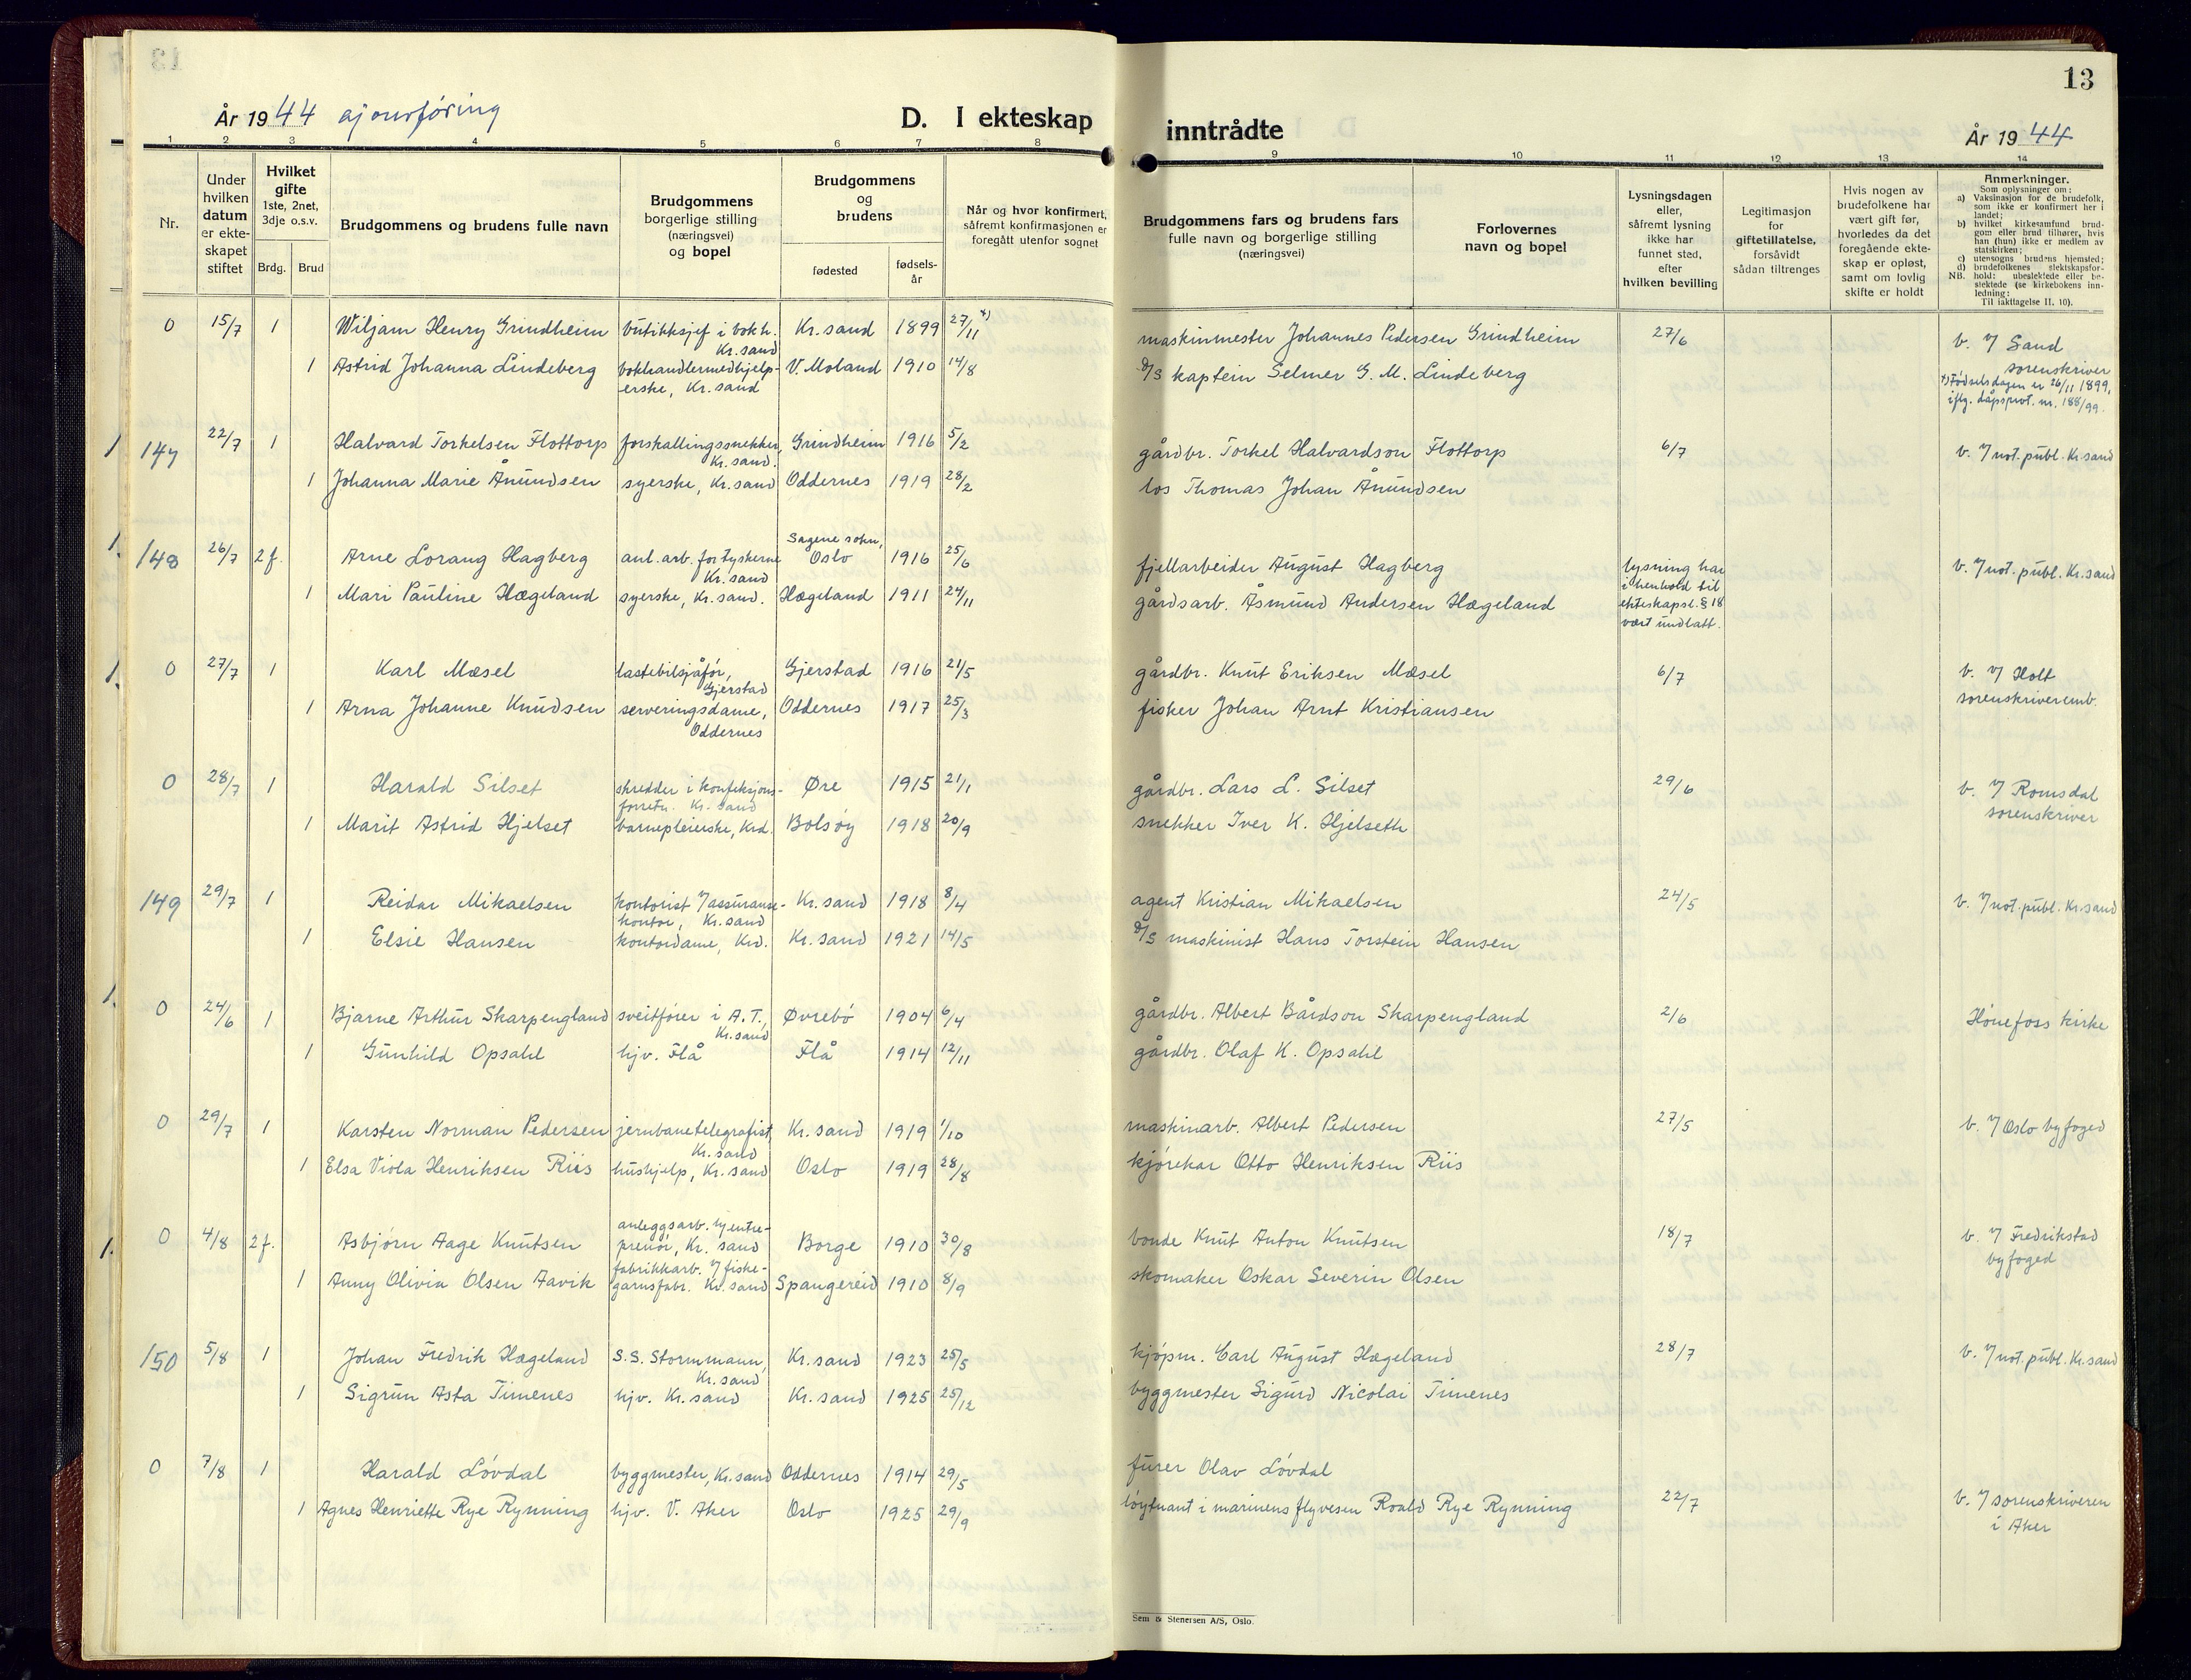 13
År 1944 ajourføring
D. I ekteskap inntrådte
År 1944
1 2 3 4 5 6 7 8 9 10 11 12 13 14
Nr.
Under hvilken datum er ekteskapet stiftet
Hvilket gifte 1ste, 2net, 3dje o.s.v.
Brdg. Brud
Brudgommens og brudens fulle navn
Brudgommens borgerlige stilling (næringsvei) og bopel
Brudgommens og brudens
fødested
fødsels-år
Når og hvor konfirmert, såfremt konfirmasjonen er foregått utenfor sognet
Brudgommens fars og brudens fars fulle navn og borgerlige stilling (næringsvei)
Forlovernes navn og bopel
Lysningsdagen eller, såfremt lysning ikke har funnet sted, efter hvilken bevilling
Legitimasjon for giftetillatelse, forsåvidt sådan tiltrenges
Hvis nogen av brudefolkene har vært gift før, hvorledes da det foregående ekteskap er opløst, samt om lovlig skifte er holdt
Anmerkninger.
Som oplysninger om:
a) Vaksinasjon for de brudefolk, som ikke er konfirmert her i landet;
b) hvilket kirkesamfund brudgom eller brud tilhører, hvis han (hun) ikke er medlem av statskirken;
c) utensogns brudens hjemsted;
d) brudefolkenes slektskapsforhold: ubeslektede eller beslektede (se kirkebokens innledning:
NB.
Til iakttagelse II. 10).
0 15/7 1 Wiljam Henry Grindheim butikksjef i bokh. Kr.sand Kr. sand 1899 27/11 *) maskinmester Johannes Pedersen Grindheim 27/6 b. v/ Sand sorenskriver
1 Astrid Johanna Lindeberg bokhandlermedhjelperske, Kr. sand V. Moland 1910 14/8 D/S kaptein Selmer G. M. Lindeberg
*) Fødselsdagen er 26/11 1899, iflg. dåpsprot. nr. 188/99.
1 147 22/7 1 Halvard Torkelsen Flottorp forskallingssnekker, Kr. sand. Grindheim 1916 5/2 gårdbr. Torkel Halvardson Flottorp 6/7 b. v/ not. publ. Kr.sand
1 Johanna Marie Ånundsen syerske, Kr. sand Oddernes 1919 28/2 los Thomas Johan Ånundsen
1. 148 26/7 2 f. Arne Lorang Hagberg anl. arb. for tyskerne Kr. sand Sagene sokn, Oslo 1916 25/6 fjellarbeider August Hagberg lysning har i henhold til ekteskapsl. § 18 vært undlatt. b. v/ not. publ. Kr. sand
1 Mari Pauline Hægeland syerske, Kr. sand. Hægeland 1911 24/11 gårdsarb. Åsmund Andersen Hægeland
1. 0 27/7 1 Karl Mæsel lastebilsjåfør, Gjerstad Gjerstad 1916 21/5 gårdbr. Knut Eriksen Mæsel 6/7 b. v/ Holt sorenskriveremb.
1 Arna Johanne Knudsen serveringsdame, Oddernes Oddernes 1917 25/3 fisker Johan Arnt Kristiansen
0 28/7 1 Harald Silset skredder i konfeksjonsforretn. Kr. sand Øre 1915 21/1 gårdbr. Lars L. Silset 29/6 b. v/ Romsdal sorenskriver
1 Marit Astrid Hjelset barnepleierske, Krd. Bolsøy 1918 20/9 snekker Iver K. Hjelseth
149 29/7 1 Reidar Mikaelsen kontorist v/ assuransekontor, Kr. sand Kr. sand 1918 8/4 agent Kristian Mikaelsen 24/5 b. v/ not. publ. Kr.sand
1 Elsie Hansen kontordame, Krd. Kr. sand 1921 14/5 D/S maskinist Hans Torstein Hansen
1. 0 24/6 1 Bjarne Arthur Skarpengland sveitfører i A.T., Kr. sand Øvrebø 1904 6/4 gårdbr. Albert Bårdson Skarpengland 2/6 Hønefoss kirke
1 Gunhild Opsahl hjv. Flå Flå 1914 12/11 gårdbr. Olaf K. Opsahl
0 29/7 1 Karsten Norman Pedersen jernbanetelegrafist, Kr. sand Kr. sand 1919 1/10 maskinarb. Albert Pedersen 27/5 b. v/ Oslo byfoged
1 Elsa Viola Henriksen Riis hushjelp, Kr. sand Oslo 1919 28/8 kjørekar Otto Henriksen Riis
1. 0 4/8 2 f. Asbjørn Aage Knutsen anleggsarb. hj entreprenør, Kr. sand Borge 1910 30/8 bonde Knut Anton Knutsen 18/7 b. v/ Fredrikstad byfoged
1 Anny Olivia Olsen Aavik fabrikkarb. v/ fiskegarnsfabr. Kr. sand Spangereid 1910 8/9 skomaker Oskar Severin Olsen
150 5/8 1 Johan Fredrik Hægeland S.S. Stormmann, Kr. sand Kr. sand 1923 25/5 kjøpm. Carl August Hægeland 28/7 b. v/ not. publ. Kr. sand
1 Sigrun Asta Timenes hjv. Kr. sand Kr. sand 1925 25/12 byggmester Sigurd Nicolai Timenes
0 7/8 1 Harald Løvdal byggmester, Kr. sand Oddernes 1914 29/5 furer Olav Løvdal
1 Agnes Henriette Rye Rynning hjv. V. Aker Oslo 1925 29/9 løytnant i marinens flyvesen Roald Rye Rynning 22/7 b. v/ sorenskriveren i Aker
Sem & Stenersen A/S, Oslo.